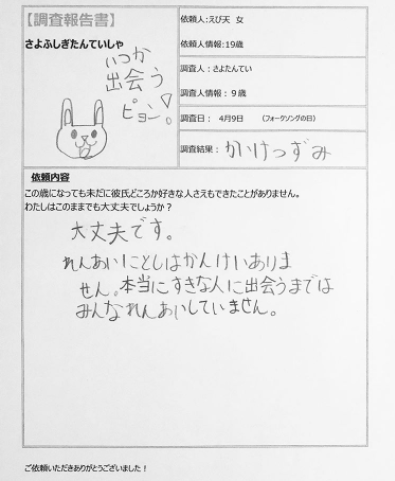 【調査報告書】
さよふしぎたんていしゃ
いつか
出会う
ピョン!
依頼人:えび天 女
依頼人情報:19歳
調査人:さよたんてい
調査人情報:9歳
調査日: 4月9日 (フォークソングの日)
調査結果:かいけつずみ
依頼内容
この歳になっても未だに彼氏どころか好きな人さえもできたことがありません。
わたしはこのままでも大丈夫でしょうか?
大丈夫です。
れんあいにとしはかんけいありま
せん。本当にすきな人に出会うまでは
みんなれんあいしていません。
ご依頼いただきありがとうございました!